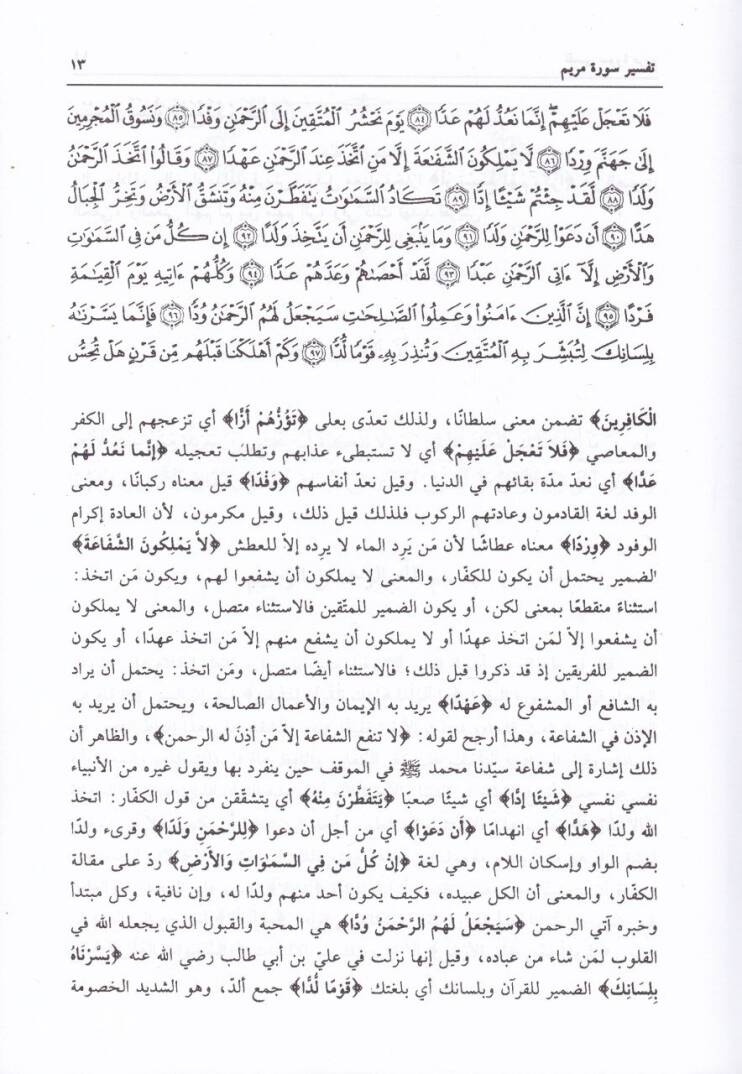 تفسير سورة مريم ١٣
فَلَا تَعْجَلْ عَلَيْهِمْ إِنَّمَا نَعُدُّ لَهُمْ عَدًّا ﴿٨٤﴾ يَوْمَ نَحْشُرُ الْمُتَّقِينَ إِلَى الرَّحْمَٰنِ وَفْدًا ﴿٨٥﴾ وَنَسُوقُ الْمُجْرِمِينَ
إِلَىٰ جَهَنَّمَ وِرْدًا ﴿٨٦﴾ لَا يَمْلِكُونَ الشَّفَاعَةَ إِلَّا مَنِ اتَّخَذَ عِندَ الرَّحْمَٰنِ عَهْدًا ﴿٨٧﴾ وَقَالُوا اتَّخَذَ الرَّحْمَٰنُ
وَلَدًا ﴿٨٨﴾ لَقَدْ جِئْتُمْ شَيْئًا إِدًّا ﴿٨٩﴾ تَكَادُ السَّمَاوَاتُ يَتَفَطَّرْنَ مِنْهُ وَتَنشَقُّ الْأَرْضُ وَتَخِرُّ الْجِبَالُ
هَدًّا ﴿٩٠﴾ أَن دَعَوْا لِلرَّحْمَٰنِ وَلَدًا ﴿٩١﴾ وَمَا يَنبَغِي لِلرَّحْمَٰنِ أَن يَتَّخِذَ وَلَدًا ﴿٩٢﴾ إِن كُلُّ مَن فِي السَّمَاوَاتِ
وَالْأَرْضِ إِلَّا آتِي الرَّحْمَٰنِ عَبْدًا ﴿٩٣﴾ لَقَدْ أَحْصَاهُمْ وَعَدَّهُمْ عَدًّا ﴿٩٤﴾ وَكُلُّهُمْ آتِيهِ يَوْمَ الْقِيَامَةِ
فَرْدًا ﴿٩٥﴾ إِنَّ الَّذِينَ آمَنُوا وَعَمِلُوا الصَّالِحَاتِ سَيَجْعَلُ لَهُمُ الرَّحْمَٰنُ وُدًّا ﴿٩٦﴾ فَإِنَّمَا يَسَّرْنَاهُ
بِلِسَانِكَ لِتُبَشِّرَ بِهِ الْمُتَّقِينَ وَتُنذِرَ بِهِ قَوْمًا لُّدًّا ﴿٩٧﴾ وَكَمْ أَهْلَكْنَا قَبْلَهُم مِّن قَرْنٍ هَلْ تُحِسُّ
الْكَافِرِينَ﴾ تضمن معنى سلطانًا، ولذلك تعدّى بعلى ﴿تَؤُزُّهُمْ أَزًّا﴾ أي تزعجهم إلى الكفر
والمعاصي ﴿فَلاَ تَعْجَلْ عَلَيْهِمْ﴾ أي لا تستبطىء عذابهم وتطلب تعجيله ﴿إِنَّما نَعُدُّ لَهُمْ
عَدًّا﴾ أي نعدّ مدّة بقائهم في الدنيا. وقيل نعدّ أنفاسهم ﴿وَفْدًا﴾ قيل معناه ركبانًا، ومعنى
الوفد لغة القادمون وعادتهم الركوب فلذلك قيل ذلك، وقيل مكرمون، لأن العادة إكرام
الوفود ﴿وِرْدًا﴾ معناه عطاشًا لأن مَن يَرِد الماء لا يرده إلاّ للعطش ﴿لاَّ يَمْلِكُونَ الشَّفَاعَةَ﴾
الضمير يحتمل أن يكون للكفّار، والمعنى لا يملكون أن يشفعوا لهم، ويكون مَن اتخذ:
استثناءً منقطعًا بمعنى لكن، أو يكون الضمير للمتّقين فالاستثناء متصل، والمعنى لا يملكون
أن يشفعوا إلاّ لمَن اتخذ عهدًا أو لا يملكون أن يشفع منهم إلاّ مَن اتخذ عهدًا، أو يكون
الضمير للفريقين إذ قد ذكروا قبل ذلك؛ فالاستثناء أيضًا متصل، ومَن اتخذ: يحتمل أن يراد
به الشافع أو المشفوع له ﴿عَهْدًا﴾ يريد به الإيمان والأعمال الصالحة، ويحتمل أن يريد به
الإذن في الشفاعة، وهذا أرجح لقوله: ﴿لا تنفع الشفاعة إلاّ مَن أذِنَ له الرحمن﴾، والظاهر أن
ذلك إشارة إلى شفاعة سيّدنا محمد ﷺ في الموقف حين ينفرد بها ويقول غيره من الأنبياء
نفسي نفسي ﴿شَيْئًا إِدًّا﴾ أي شيئًا صعبًا ﴿يَتَفَطَّرْنَ مِنْهُ﴾ أي يتشققن من قول الكفّار: اتخذ
الله ولدًا ﴿هَدًّا﴾ أي انهدامًا ﴿أَن دَعَوْا﴾ أي من أجل أن دعوا ﴿لِلرَّحْمَنِ وَلَدًا﴾ وقرىء ولدًا
بضم الواو وإسكان اللام، وهي لغة ﴿إِن كُلُّ مَن فِي السَّمَوَاتِ وَالأَرْضِ﴾ ردّ على مقالة
الكفّار، والمعنى أن الكل عبيده، فكيف يكون أحد منهم ولدًا له، وإن نافية، وكل مبتدأ
وخبره آتي الرحمن ﴿سَيَجْعَلُ لَهُمُ الرَّحْمَنُ وُدًّا﴾ هي المحبة والقبول الذي يجعله الله في
القلوب لمَن شاء من عباده، وقيل إنها نزلت في عليّ بن أبي طالب رضي الله عنه ﴿يَسَّرْنَاهُ
بِلِسَانِكَ﴾ الضمير للقرآن وبلسانك أي بلغتك ﴿قَوْمًا لُّدًّا﴾ جمع ألدّ، وهو الشديد الخصومة